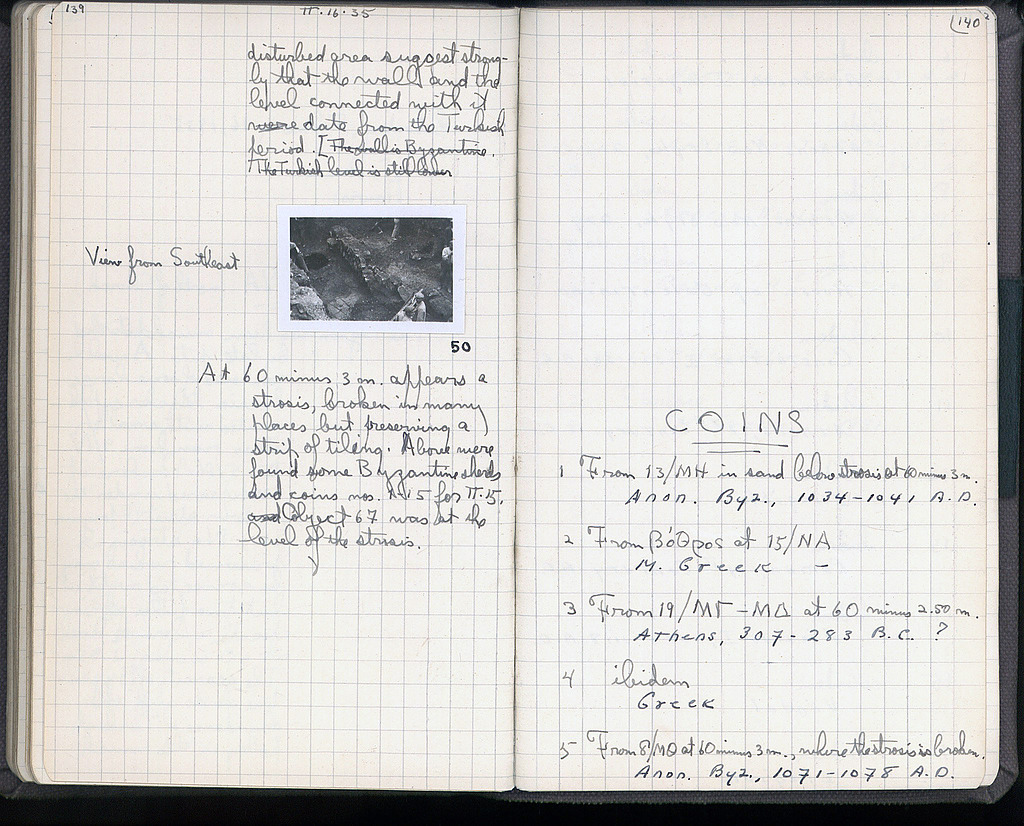 139
II.16.35
disturbed area suggest strong-
ly that the wall and the
level connected with it
were date from the Turkish
period. [The wall is Byzantine.
The Turkish level is still lower
View from Southeast
50
At 60 minus 3 m. appears a
strosis, broken in many
places but preserving a
strip of tiling. Above were
found some Byzantine sherds
and coins nos. 1-15 for II.15.
and Object 67 was at the
level of the strosis.
140
COINS
1 From 13/MH in sand below strosis at 60 minus 3 m.
Anon. Byz., 1034-1041 A.D.
2 From βόθρος at 15/NA
M. Greek –
3 From 19/MΓ-MΔ at 60 minus 2.50 m.
Athens, 307-283 B.C. ?
4 ibidem
Greek
5 From 8/MΘ at 60 minus 3 m., where the strosis is broken.
Anon. Byz., 1071-1078 A.D.